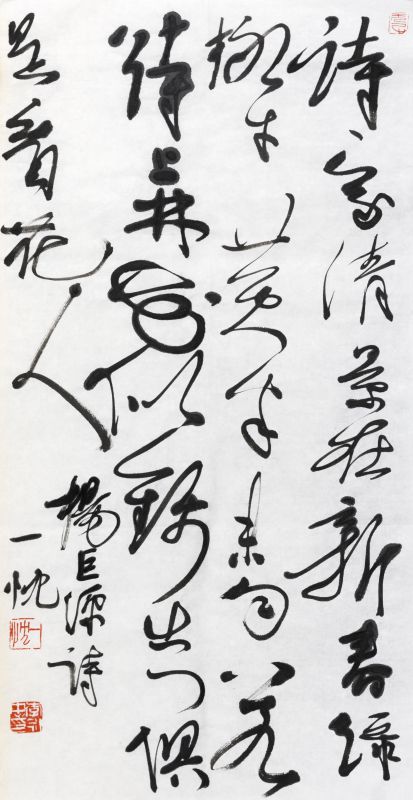 詩家清景在新春綠
柳才黃半未匀若
待上林花似錦出门俱
是看花人
楊巨源詩
一忱